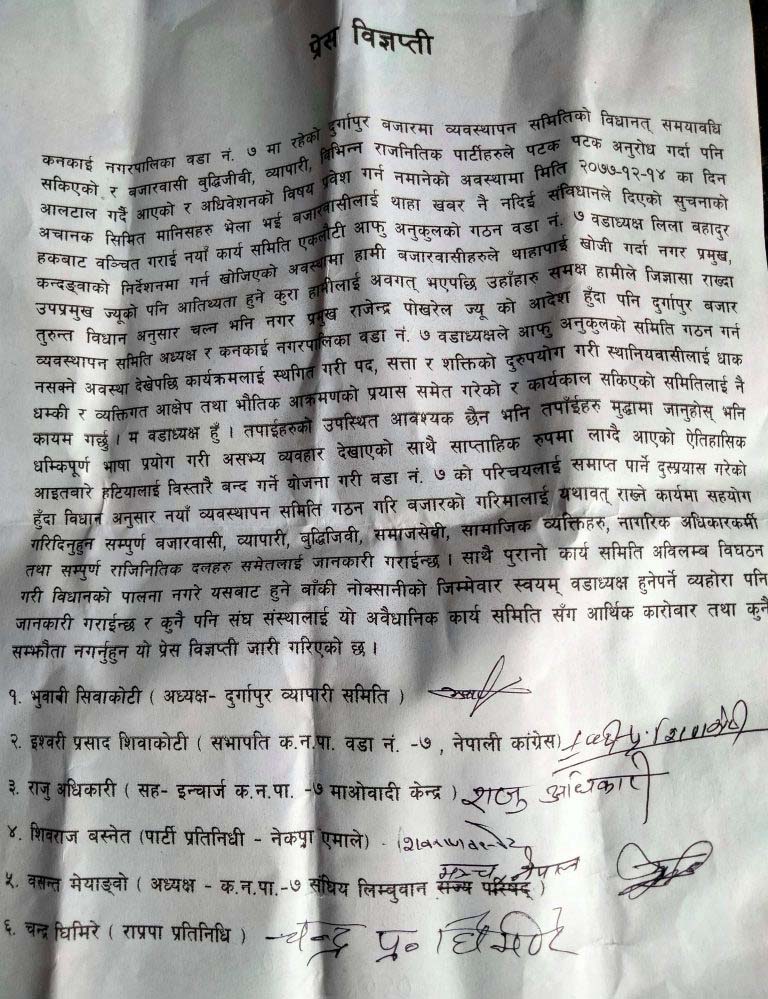 प्रेस विज्ञप्ती
कनकाई नगरपालिका वडा नं. ७ मा रहेको दुर्गापुर बजारमा व्यवस्थापन समितिको विधानत् समयावधि
सकिएको र बजारवासी बुद्धिजीवी, व्यापारी, विभिन्न राजनितिक पार्टीहरुले पटक पटक अनुरोध गर्दा पनि
आलटाल गर्दै आएको र अधिवेशनको विषय प्रवेश गर्न नमानेको अवस्थामा मिति २०७७-१२-१४ का दिन
अचानक सिमित मानिसहरु भेला भई बजारवासीलाई थाहा खबर नै नदिई संविधानले दिएको सुचनाको
हकबाट वञ्चित गराई नयाँ कार्य समिति एकलौटी आफु अनुकुलको गठन वडा नं. ७ वडाध्यक्ष लिला बहादुर
कन्दङ्वाको निर्देशनमा गर्न खोजिएको अवस्थामा हामी बजारवासीहरुले थाहापाई खोजी गर्दा नगर प्रमुख,
उपप्रमुख ज्यूको पनि आतिथ्यता हुने कुरा हामीलाई अवगत् भएपछि उहाँहरु समक्ष हामीले जिज्ञासा राख्दा
तुरुन्त विधान अनुसार चल्न भनि नगर प्रमुख राजेन्द्र पोखरेल ज्यू को आदेश हुँदा पनि दुर्गापुर बजार
व्यवस्थापन समिति अध्यक्ष र कनकाई नगरपालिका वडा नं. ७ वडाध्यक्षले आफु अनुकुलको समिति गठन गर्न
नसक्ने अवस्था देखेपछि कार्यक्रमलाई स्थगित गरी पद, सत्ता र शक्तिको दुरुपयोग गरी स्थानियवासीलाई धाक
धम्की र व्यक्तिगत आक्षेप तथा भौतिक आक्रमणको प्रयास समेत गरेको र कार्यकाल सकिएको समितिलाई नै
कायम गर्छु । म वडाध्यक्ष हुँ । तपाईहरुको उपस्थित आवश्यक छैन भनि तपाँईहरु मुद्धामा जानुहोस् भनि
धम्किपूर्ण भाषा प्रयोग गरी असभ्य व्यवहार देखाएको साथै साप्ताहिक रुपमा लाग्दै आएको ऐतिहासिक
आइतबारे हटियालाई विस्तारै बन्द गर्ने योजना गरी वडा नं. ७ को परिचयलाई समाप्त पार्ने दुस्प्रयास गरेको
हुँदा विधान अनुसार नयाँ व्यवस्थापन समिति गठन गरि बजारको गरिमालाई यथावत् राख्ने कार्यमा सहयोग
गरिदिनुहुन सम्पुर्ण बजारवासी, व्यापारी, बुद्धिजिवी, समाजसेवी, सामाजिक व्यक्तिहरु, नागरिक अधिकारकर्मी
तथा सम्पुर्ण राजिनितिक दलहरु समेतलाई जानकारी गराईन्छ । साथै पुरानो कार्य समिति अविलम्ब विघठन
गरी विधानको पालना नगरे यसबाट हुने बाँकी नोक्सानीको जिम्मेवार स्वयम् वडाध्यक्ष हुनेपर्ने व्यहोरा पनि
जानकारी गराईन्छ र कुनै पनि संघ संस्थालाई यो अवैधानिक कार्य समिति सँग आर्थिक कारोबार तथा कुनै
सम्झौता नगर्नुहुन यो प्रेस विज्ञप्ती जारी गरिएको छ ।
१. भुवानी सिवाकोटी ( अध्यक्ष- दुर्गापुर व्यापारी समिति )
२. इश्वरी प्रसाद शिवाकोटी ( सभापति क.न.पा. वडा नं. -७ , नेपाली कांग्रेस)
३. राजु अधिकारी ( सह- इन्चार्ज क.न.पा. -७ माओवादी केन्द्र ) राजु अधिकारी
४. शिवराज बस्नेत (पार्टी प्रतिनिधी - नेकपा एमाले)
मञ्च नेपाल
५. वसन्त मेयाङ्वो ( अध्यक्ष - क.न.पा.-७ संघिय लिम्बुवान राज्य परिषद् )
६. चन्द्र घिमिरे ( राप्रपा प्रतिनिधि ) चन्द्र प्र. घिमिरे